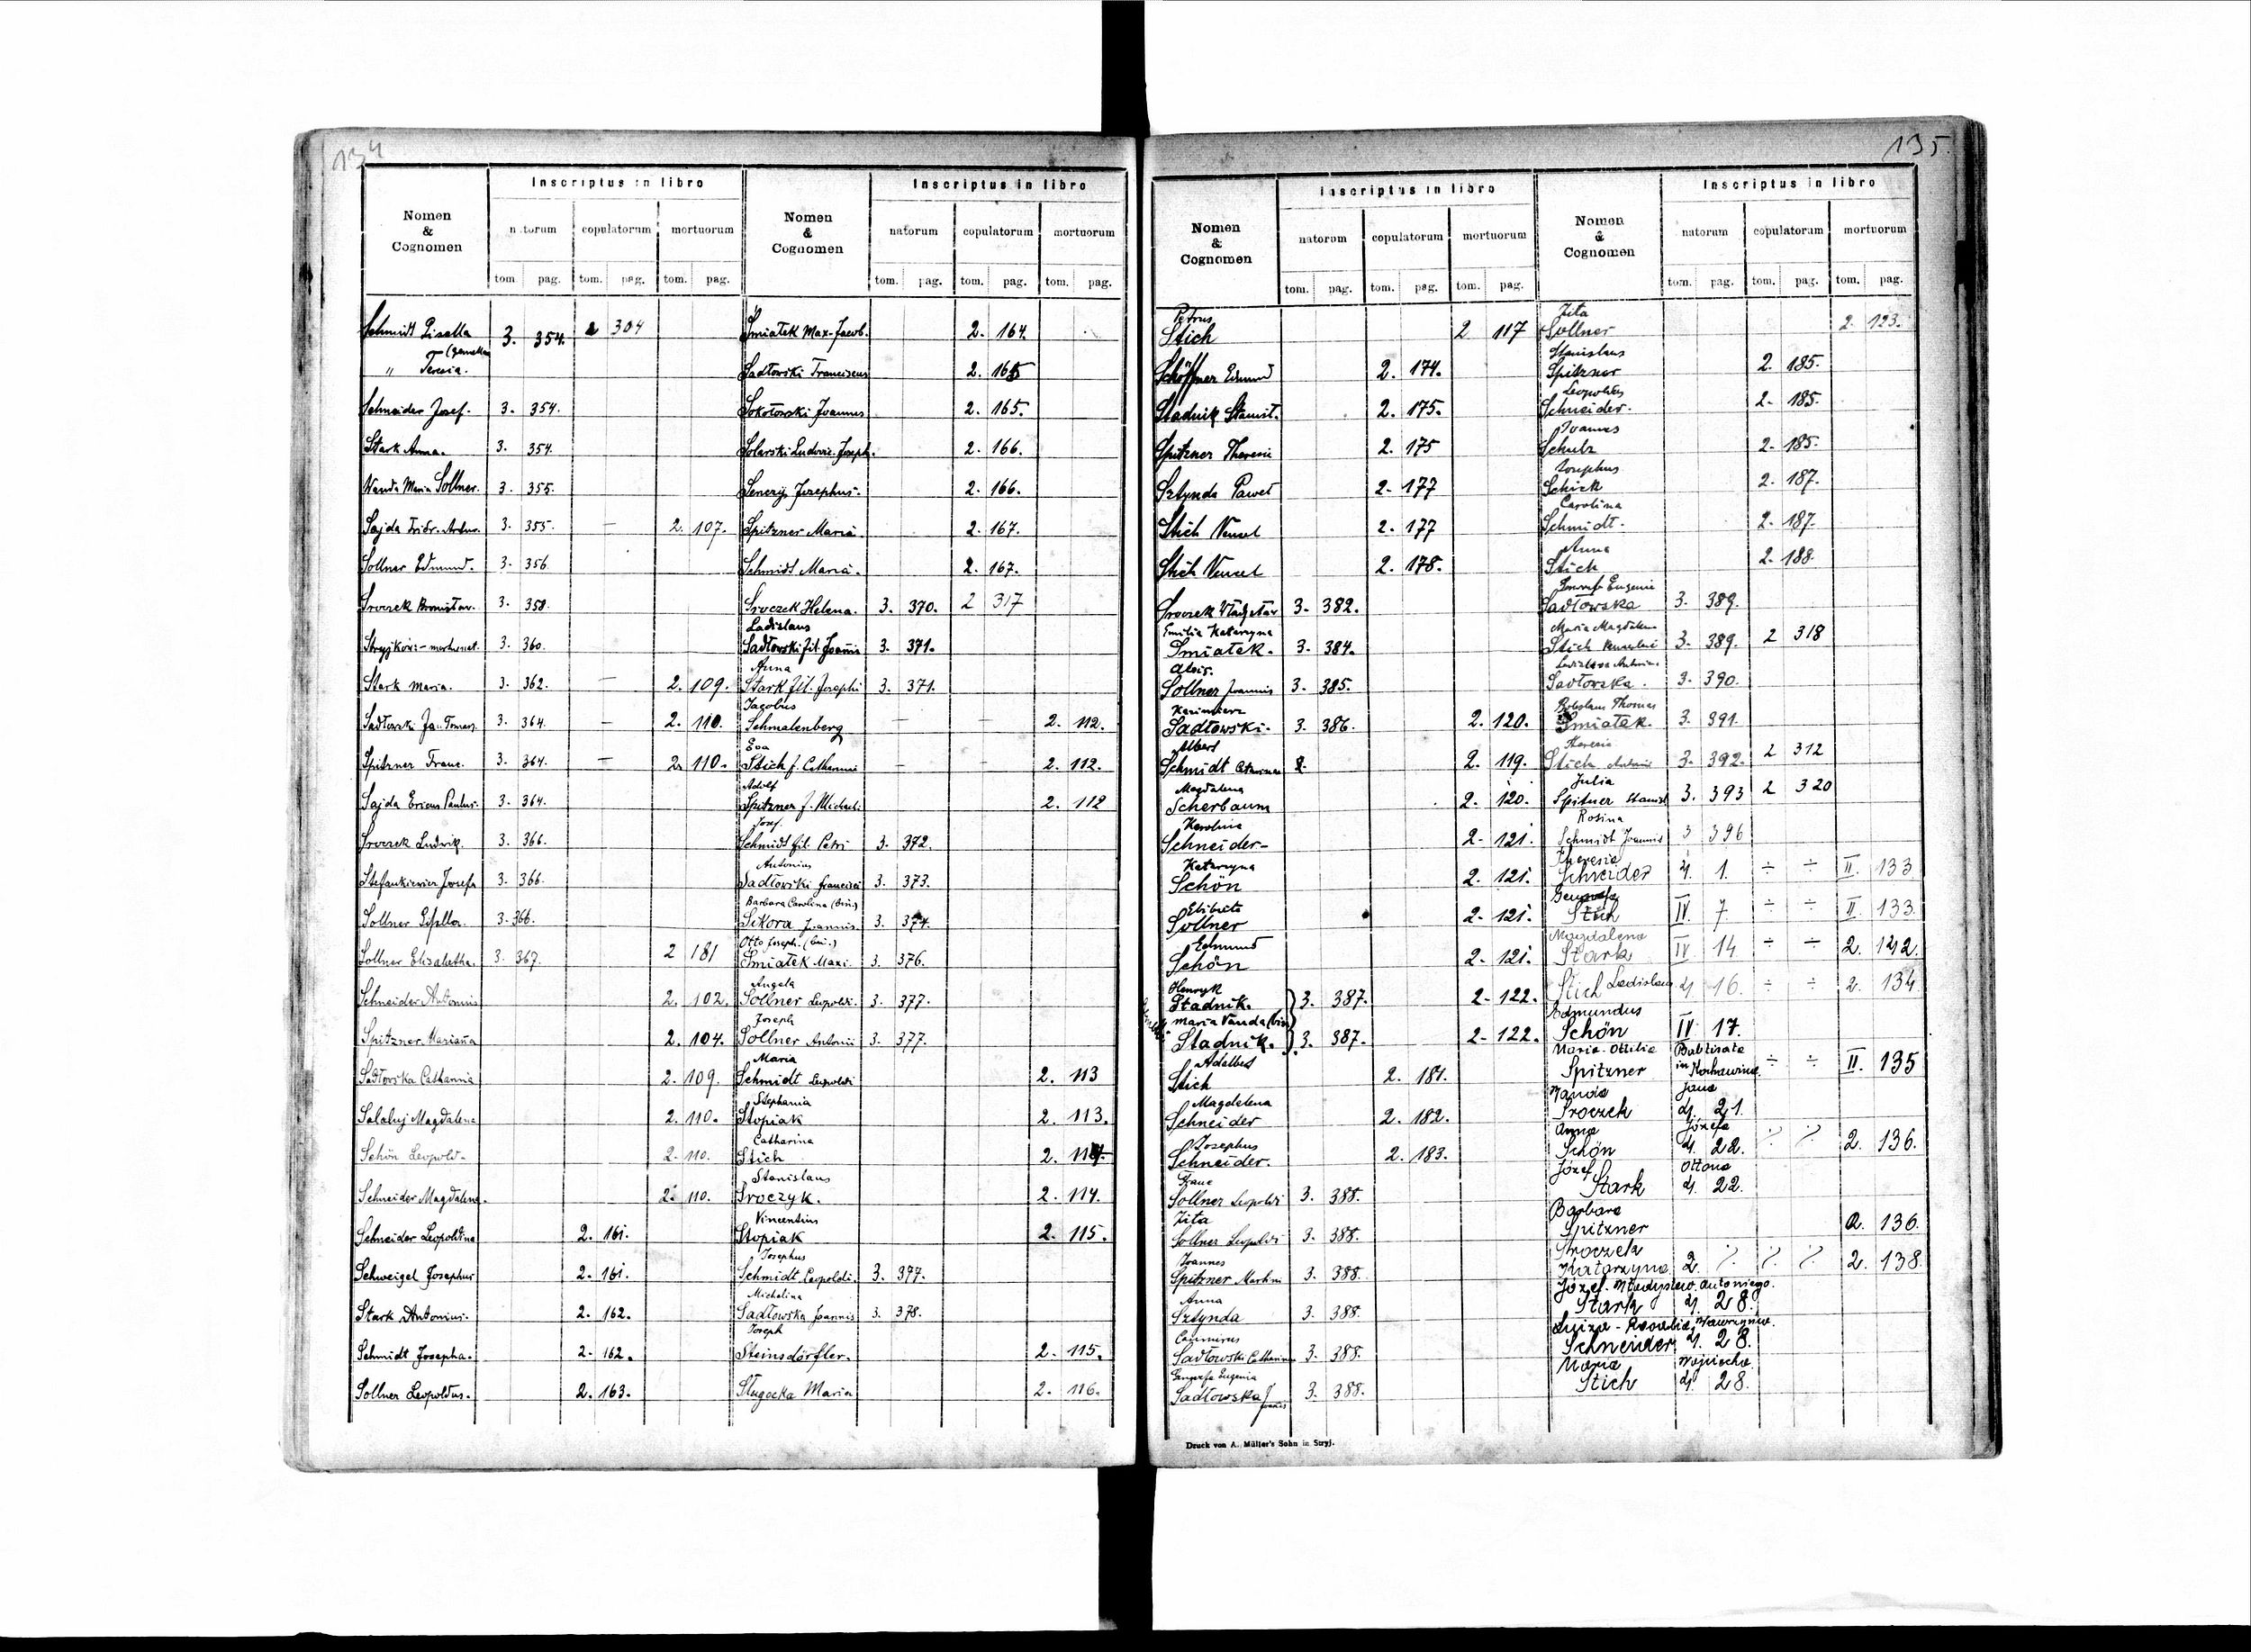 134
Inscriptus in libro
Nomen & Cognomen
natorum copulatorum mortuorum
tom. pag. tom. pag. tom. pag.
Schmidt Gisella 3. 354. 2 304
(gemellae
" Teresia.
Schneider Josef. 3. 354.
Stark Anna. 3. 354.
Wanda Maria Sollner. 3. 355.
Sajda Fridr. Artur. 3. 355. — 2. 107.
Sollner Edmund. 3. 356.
Sroczek Bronisław. 3. 358.
3. 360.
Stark Maria. 3. 362. — 2. 109.
Sadłowski Ja. Tomasz. 3. 364. — 2. 110.
Spitzner Franc. 3. 364. — 2. 110.
Sajda Ericus Paulus. 3. 364.
Sroczek Ludwik. 3. 366.
Stefankiewicz Josefa 3. 366.
Sollner Gisella. 3. 366.
Sollner Elisabetha. 3. 367. 2 181
Schneider Antonius 2. 102.
Spitzner Marianna 2. 104.
Sadłowska Catharina 2. 109.
Salaluj Magdalena 2. 110.
Schön Leopold- 2. 110.
Schneider Magdalena. 2. 110.
Schneider Leopoldina 2. 161.
Schweigel Josephus 2. 161.
Stark Antonius. 2. 162.
Schmidt Josepha. 2. 162.
Sollner Leopoldus. 2. 163.
Nomen & Cognomen
Inscriptus in libro
natorum copulatorum mortuorum
tom. pag. tom. pag. tom. pag.
Smiatek Max-Jacob. 2. 164.
Sadłowski Franciscus 2. 165
Sokołowski Joannes 2. 165.
Solarski Ludovic. Joseph. 2. 166.
Josephus. 2. 166.
Spitzner Maria. 2. 167.
Schmidt Maria. 2. 167.
Sroczek Helena. 3. 370. 2 317
Ladislaus
Sadłowski fil. Joannis 3. 371.
Anna
Stark fil. Josephi 3. 371.
Jacobus
Schmalenberg — — 2. 112.
Eva
Stich f. Catharinae — — 2. 112.
Adolf
Spitzner f. Michael. 2. 112
Josef.
Schmidt fil. Petri 3. 372.
Antonius
Sadłowski Francisci 3. 373.
Barbara Carolina (bini)
Sikora Joannis 3. 374.
Otto Joseph. (bini.)
Smiatek Maxi. 3. 376.
Angela
Sollner Leopoldi. 3. 377.
Joseph
Sollner Antonii 3. 377.
Maria
Schmidt Leopoldi 2. 113
Stephania
Stopiak 2. 113.
Catharina
Stich 2. 114.
Stanislaus
Sroczyk. 2. 114.
Vincentius
Stopiak 2. 115.
Josephus
Schmidt Leopoldi. 3. 377.
Michelina
Sadłowska Joannis 3. 378.
Joseph
Steinsdörfler. 2. 115.
Sługocka Maria 2. 116.
135.
Inscriptus in libro
Nomen & Cognomen
natorum copulatorum mortuorum
tom. pag. tom. pag. tom. pag.
Petrus
Stich 2 117
Schöffner Edmund 2. 174.
Stadnik Stanisł. 2. 175.
Spitzner Theresia 2. 175
Sztynda Paweł 2. 177
Stich Vensel 2. 177
Stich Vensel 2. 178.
Sroczek Władysław 3. 382.
Emilia Katarzyna
Smiatek. 3. 384.
Alois.
Sollner Joannis 3. 385.
Kazimierz
Sadłowski. 3. 386. 2. 120.
Albert
Schmidt Catarinae 2. 2. 119.
Magdalena
Scherbaum 2. 120.
Karolina
Schneider- 2. 121.
Katarzyna
Schön 2. 121.
Elżbieta
Sollner 2. 121.
Edmund
Schön 2. 121.
Henryk
Stadnik. 3. 387. 2. 122.
Maria Vanda (bini)
Stadnik. 3. 387. 2. 122.
Adalbert
Stich 2. 181.
Magdalena
Schneider 2. 182.
Josephus
Schneider. 2. 183.
Franc
Sollner Leopoldi 3. 388.
Zita
Sollner Leopoldi 3. 388.
Joannes
Spitzner Martini 3. 388.
Anna
Sztynda 3. 388.
Casimirus
Sadłowski Catharinae 3. 388.
Genovefa Eugenia
Sadłowska Joannis 3. 388.
Druck von A. Müller's Sohn in Stryj.
Nomen & Cognomen
Inscriptus in libro
natorum copulatorum mortuorum
tom. pag. tom. pag. tom. pag.
Zita
Sollner 2. 123.
Stanislaus
Spitzner 2. 185.
Leopoldus
Schneider. 2. 185.
Joannes
Schulz 2. 185.
Josephus
Schick 2. 187.
Carolina
Schmidt. 2. 187.
Anna
Stich 2. 188
Genovefa Eugenie
Sadłowska 3. 389.
Maria Magdalena
Stich 3. 389. 2 318
Ladislava Antonina
Sadłowska. 3. 390.
Boleslaus Thomas
Smiatek. 3. 391.
Theresia
Stich Antonii 3. 392. 2 312
Julia
Spitzner Stanisl 3. 393 2 320
Rosina
Schmidt Joannis 3 396
Theresia
Schneider 4. 1. ÷ ÷ II. 133
Genovefa
Stich IV 7. ÷ ÷ II. 133.
Magdalena
Stark IV 14 ÷ ÷ 2. 142.
Stich Ladislaus 4 16. ÷ ÷ 2. 134
Edmundus
Schön IV. 17.
Maria-Ottilia Babtisata
Spitzner in Kochawina ÷ ÷ II. 135
Wanda Jana
Sroczek 4. 21.
Anna Józefa
Schön 4. 22. ÷ ÷ 2. 136.
Józef Ottona
Stark 4. 22.
Barbara
Spitzner 2. 136.
Sroczek
Katarzyna 2. ÷ ÷ ÷ 2. 138.
Józef-Władysław. Antoniego.
Stark 4. 28.
Luiza-Rozalia, Wawrzyńca.
Schneider 4. 28.
Maria Wojciecha.
Stich 4. 28.